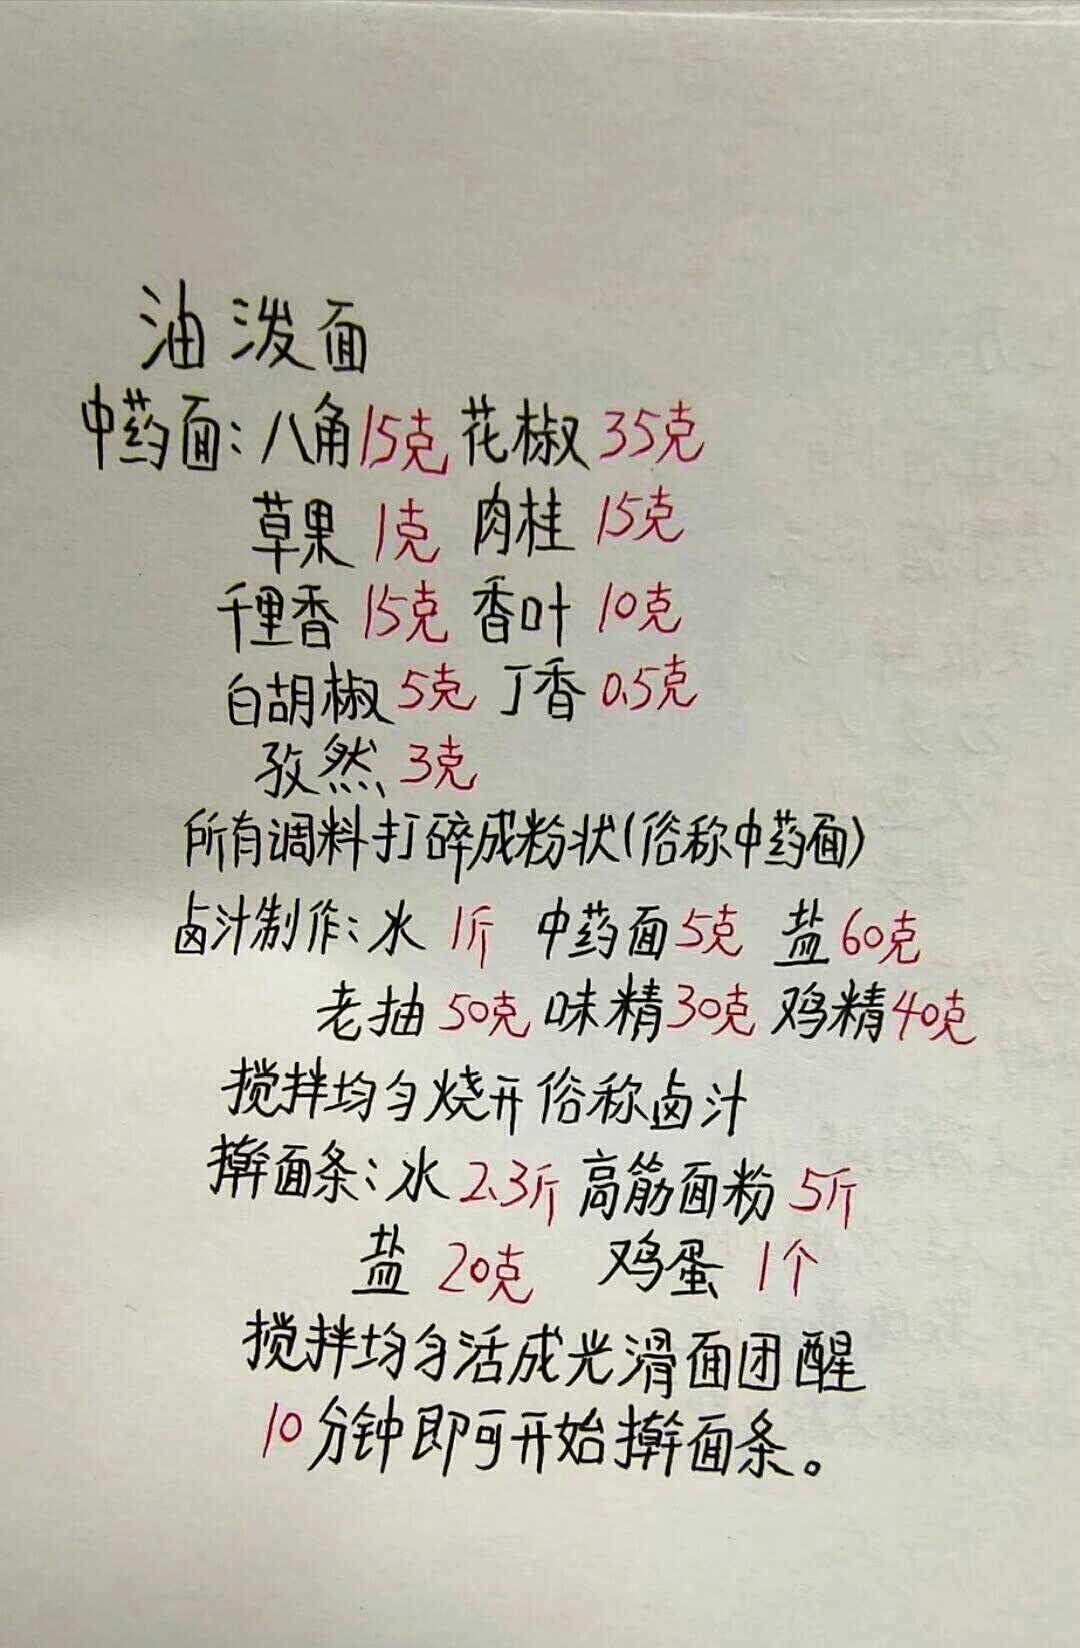 油泼面
中药面:八角15克 花椒35克
草果 1克 肉桂 15克
千里香 15克 香叶 10克
白胡椒 5克 丁香 0.5克
孜然 3克
所有调料打碎成粉状(俗称中药面)
卤汁制作:水 1斤 中药面5克 盐60克
老抽 50克 味精30克 鸡精40克
搅拌均匀烧开俗称卤汁
擀面条:水 2.3斤 高筋面粉 5斤
盐 20克 鸡蛋 1个
搅拌均匀活成光滑面团醒
10分钟即可开始擀面条。